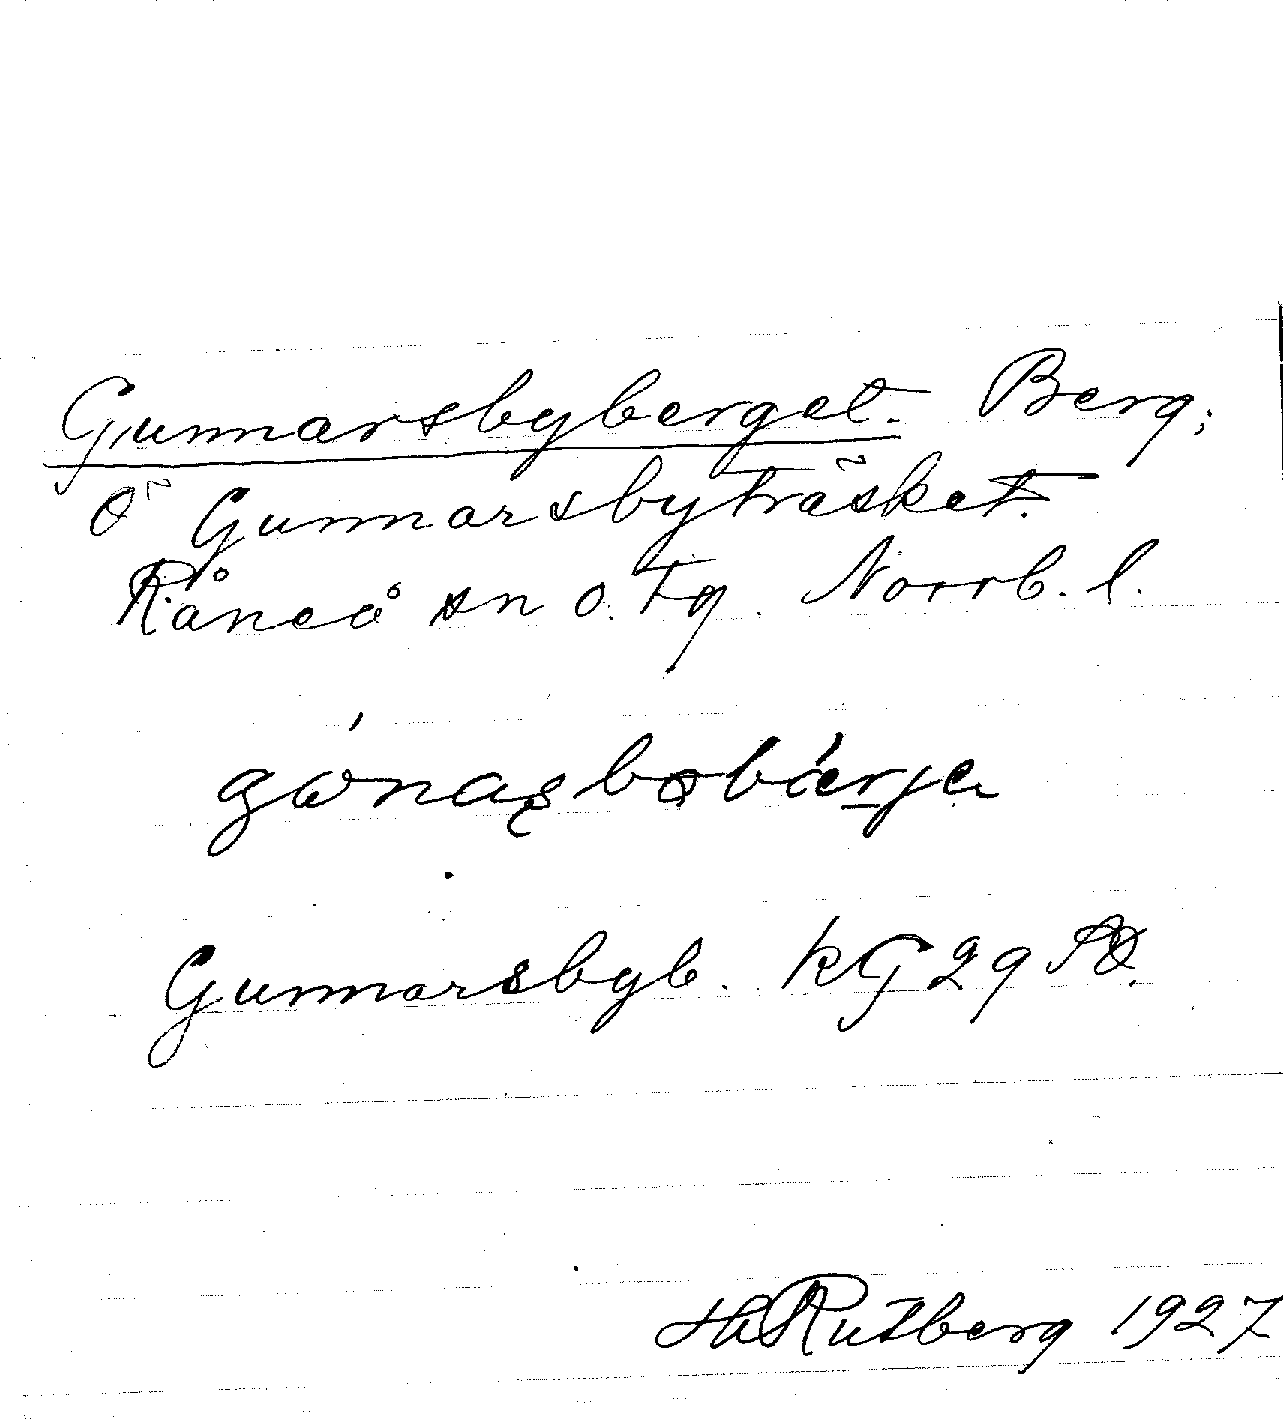 Gunnarsbyberget. Berg;
ö Gunnarsbyträsket.
Råneå sn o. tg. Norrb. l.
Gunnarsbyb. kG 29 SO.
H Rutberg 1927